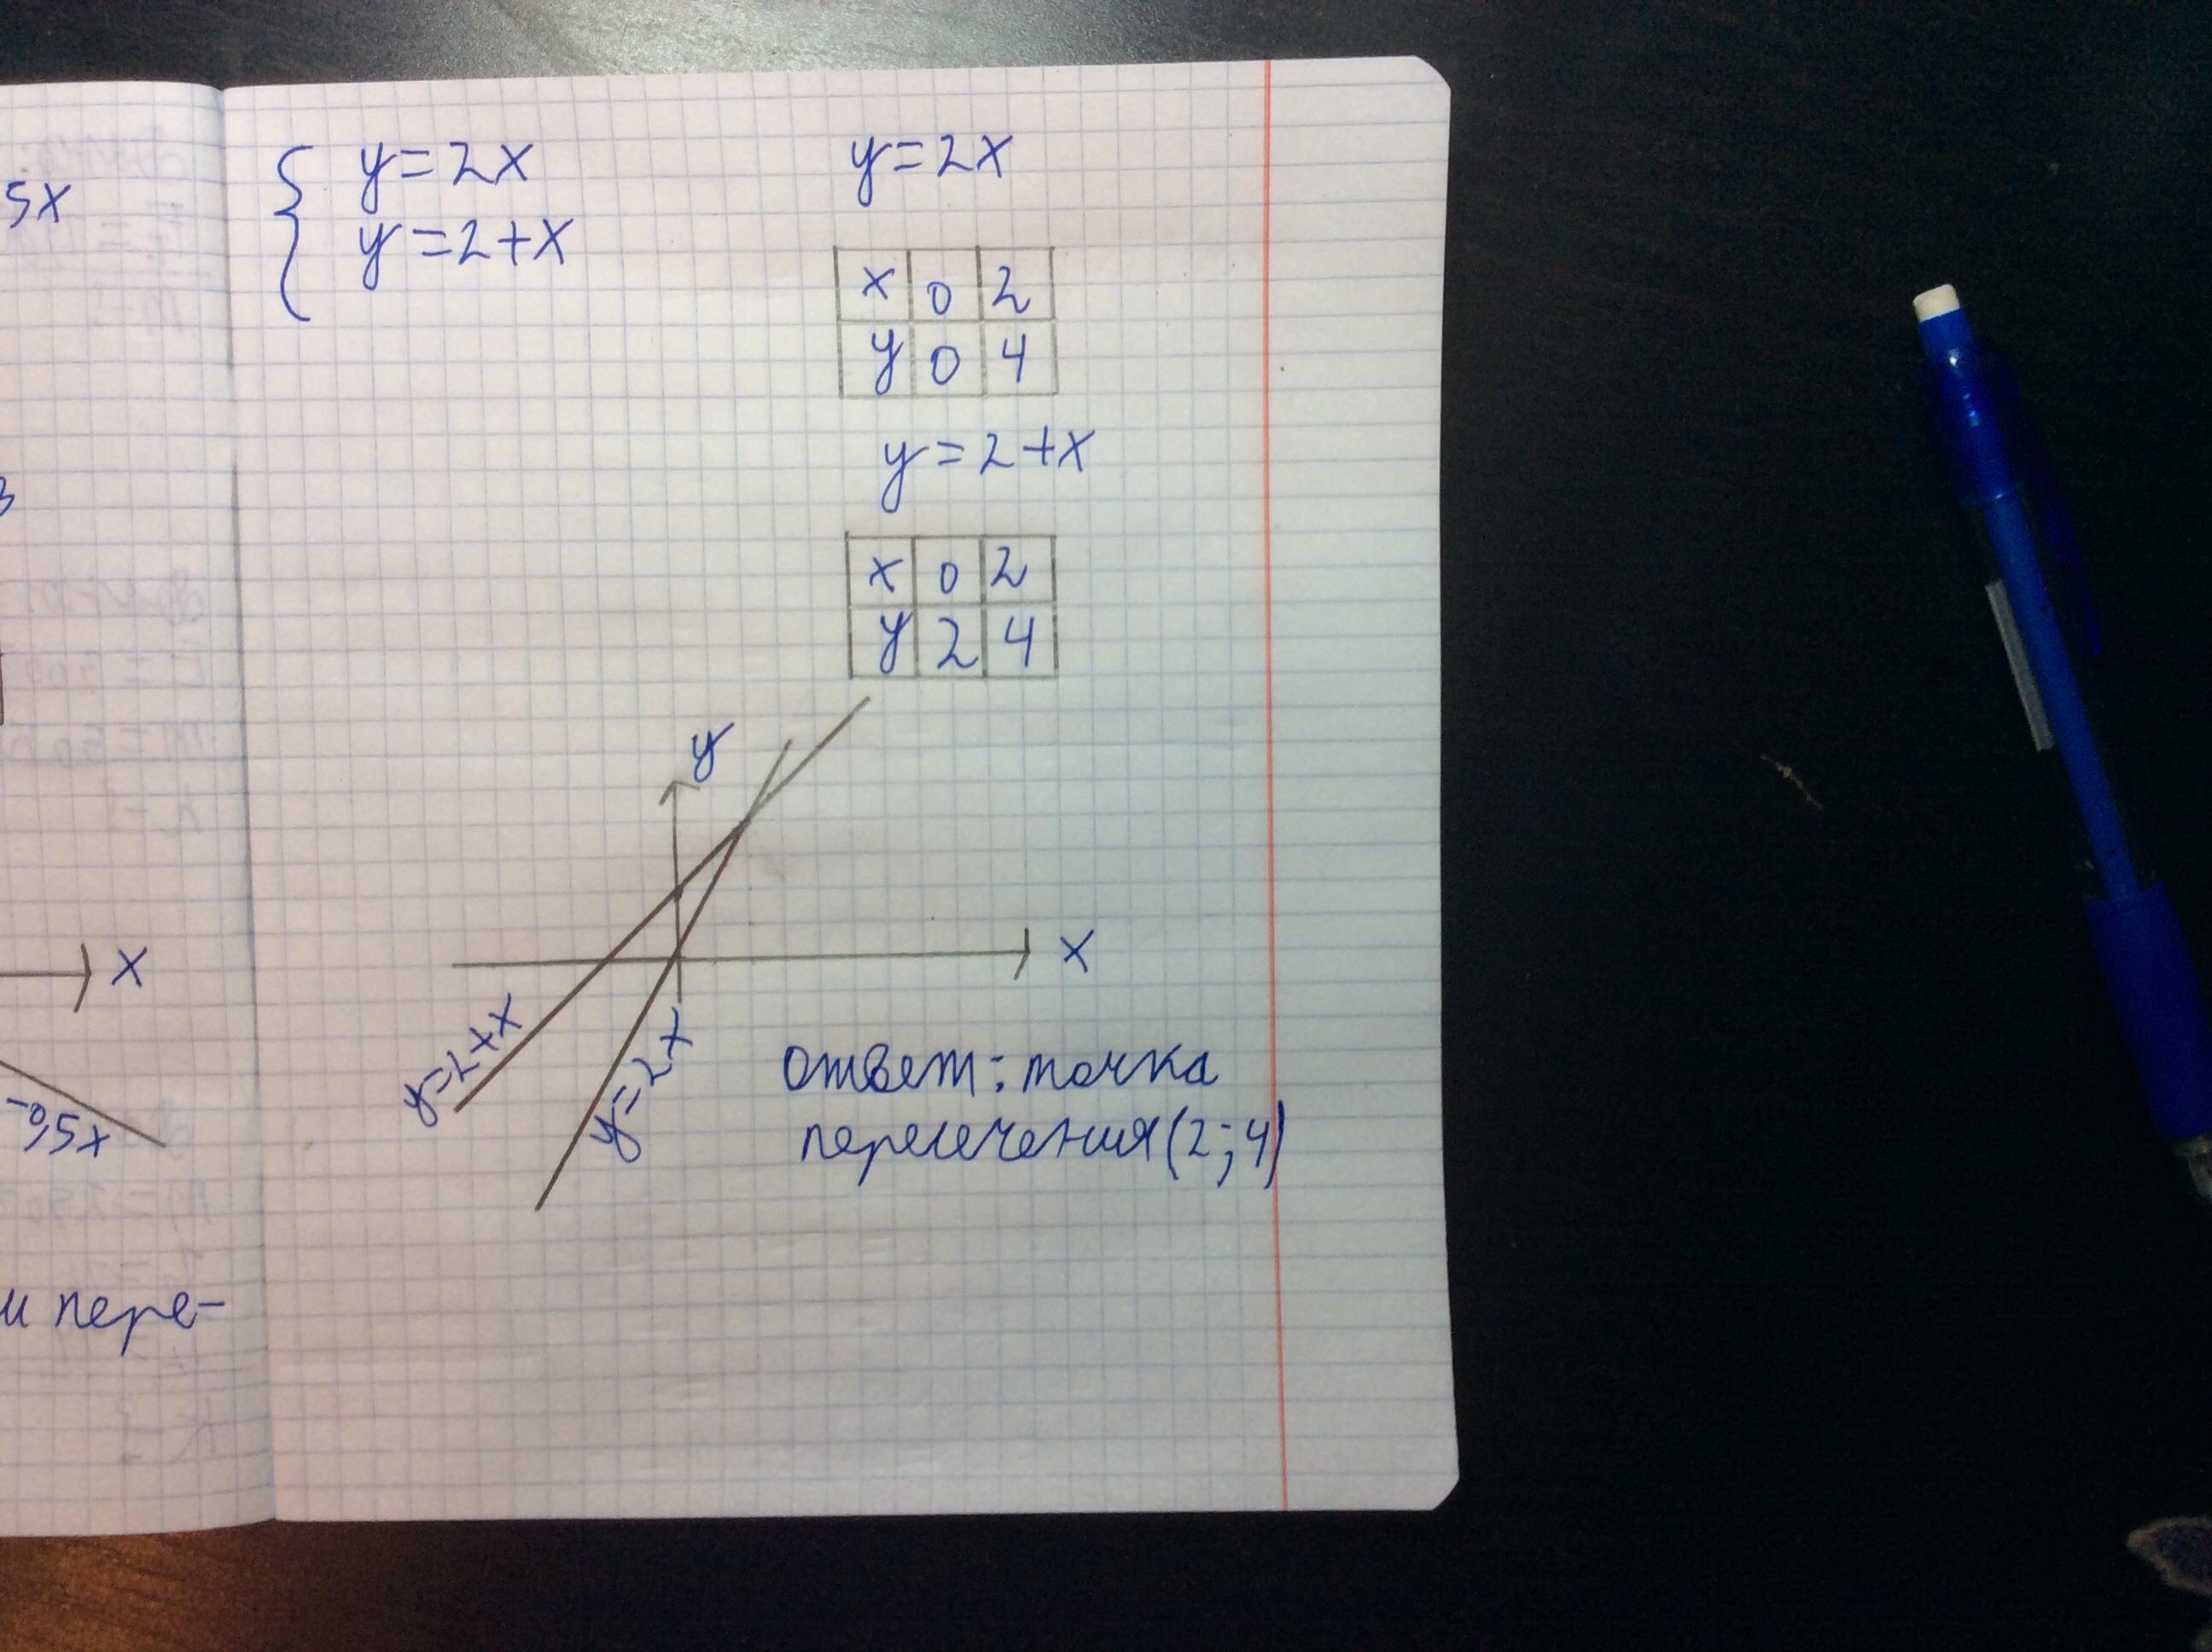 5x
y=2x
y=2+x
y=2x
x 0 2
y 0 4
y=2+x
x 0 2
y 2 4
y
x
x
y=2+x
y=2x
-0,5x
ответ: точка
пересечения (2;4)
и пере-